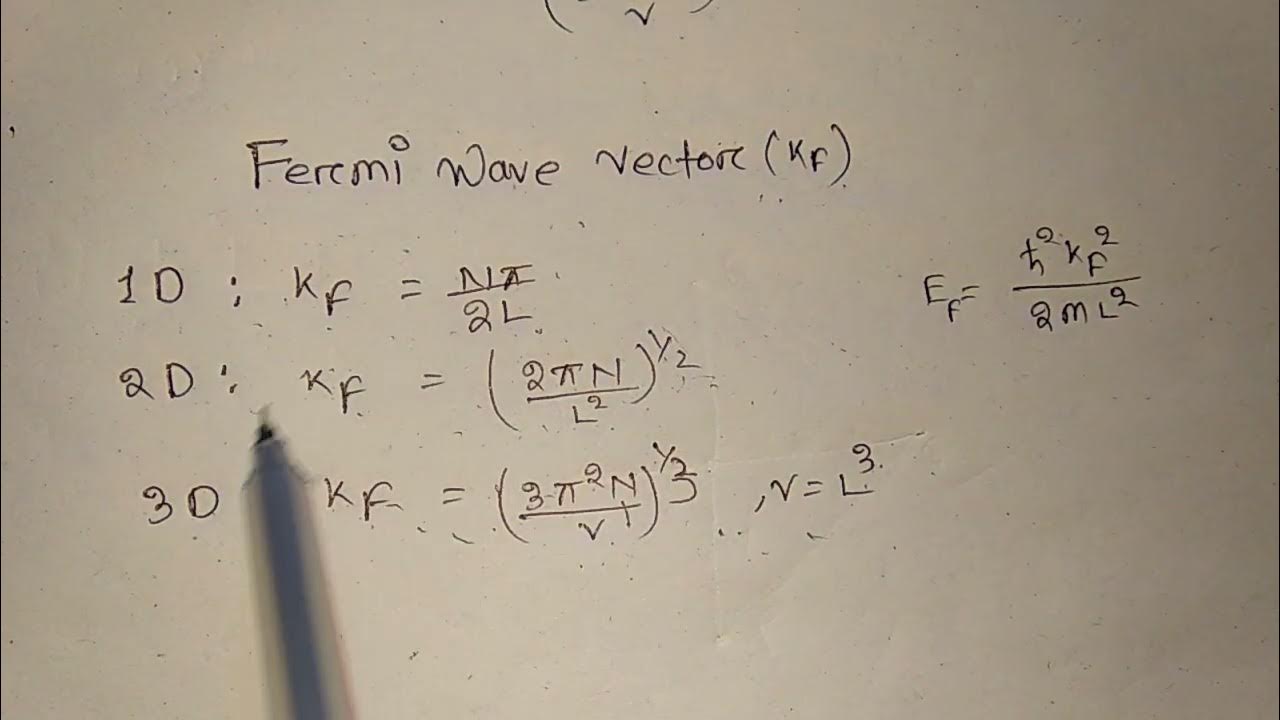 v
Fercmi Wave Vectorc (K_F)
1D : K_F = Nπ/2L
E_F = ħ²K_F²/2mL²
2D : K_F = (2πN/L²)^1/2
3D K_F = (3π²N/V)^1/3 , V = L³